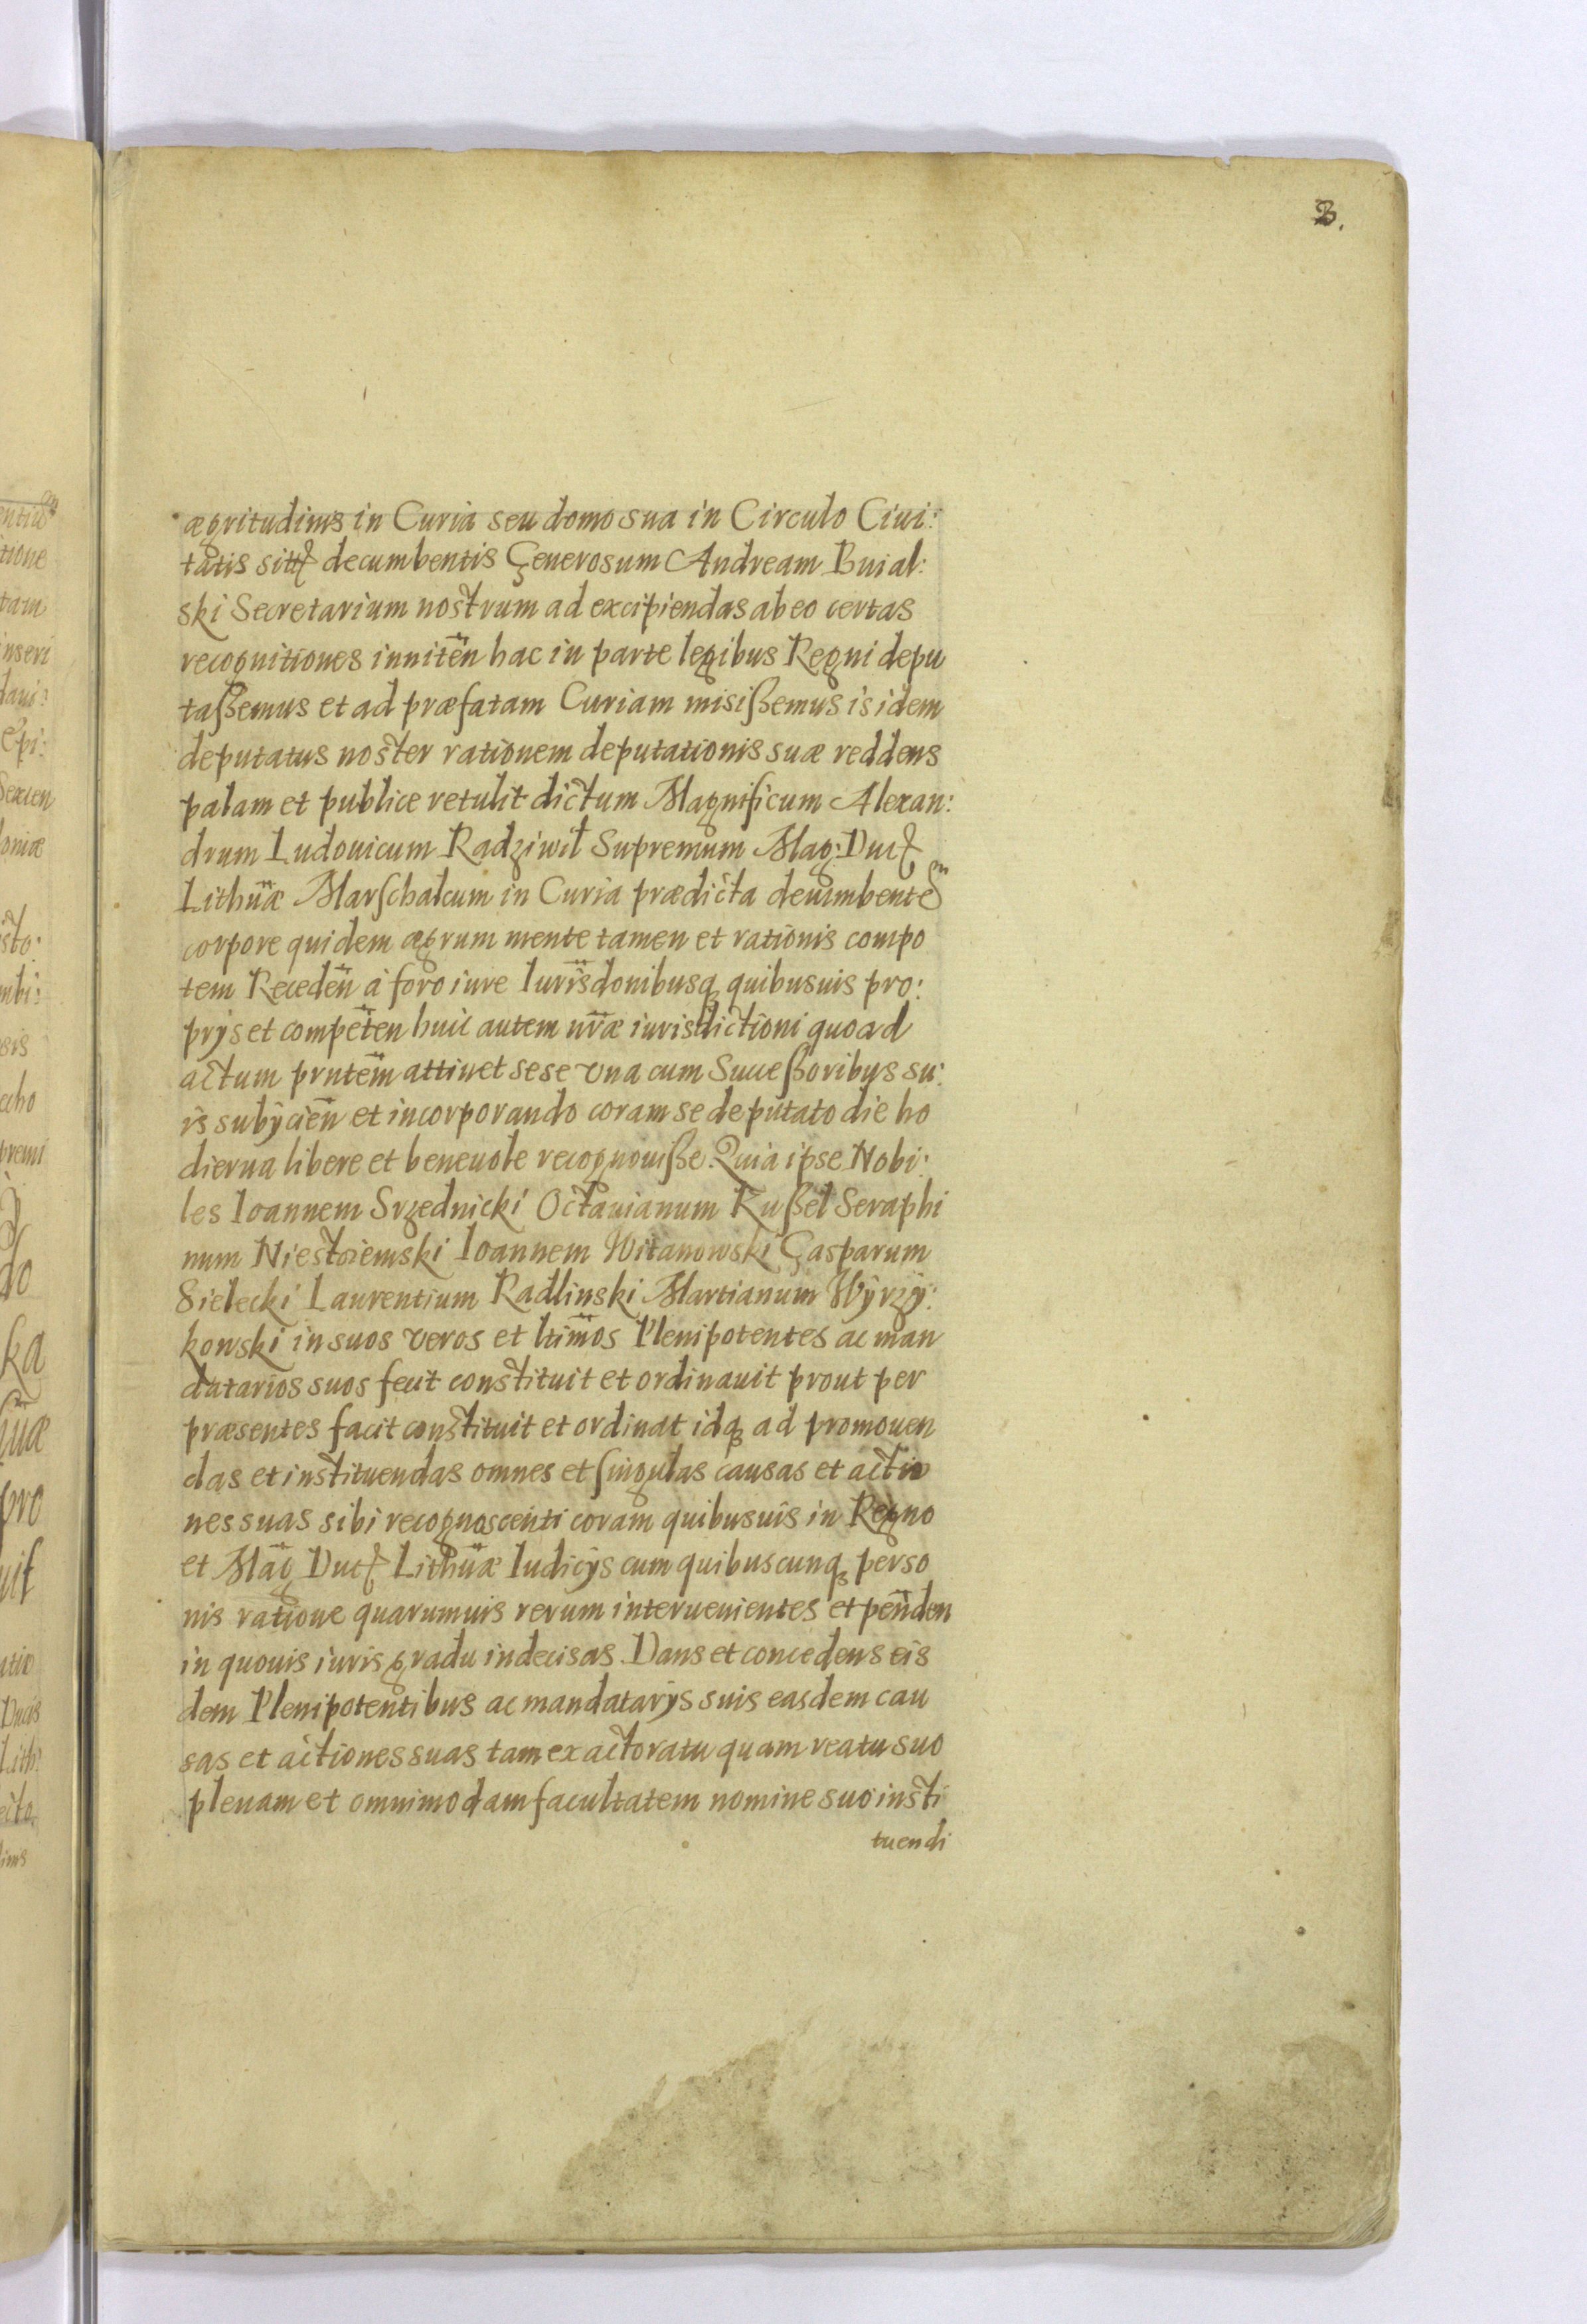 3.
ægritudinis in Curia seu domo sua in Circulo Ciui:
tatis sitt decumbentis Generosum Andream Buial:
ski Secretarium nostrum ad excipiendas ab eo certas
recognitiones inniten̄ hac in parte legibus Regni depu
taßemus et ad præfatam Curiam misißemus is idem
deputatus noster rationem deputationis suæ reddens
palam et publice retulit dictum Magnificum Alexan:
drum Ludouicum Radziwił Supremum Mag: Duc
Lithūæ Marschalcum in Curia prædicta decumbentem
corpore quidem ægrum mente tamen et rationis compo
tem Receden̄ à foro iure Iurisdōnibusq quibusuis pro:
prijs et competen̄ huic autem nr̄æ iurisdictioni quoad
actum prnt̄em attinet sese vna cum Succeßoribus su:
is subijcien̄ et incorporando coram se deputato die ho
dierna libere et beneuole recognouiße. Quia ipse Nobi:
les Ioannem Srzednicki Octauianum Rußel Seraphi
num Niestoiemski Ioannem Witanowski Gasparum
Sielecki Laurentium Radlinski Martianum Wyrzy:
kowski in suos veros et ltim̄os Plenipotentes ac man
datarios suos fecit constituit et ordinauit prout per
præsentes facit constituit et ordinat idq ad promouen
das et instituendas omnes et singulas causas et actio
nes suas sibi recognoscenti coram quibusuis in Regno
et Māg Duc Lithūæ Iudicijs cum quibuscunq perso
nis ratione quarumuis rerum interuenientes et penden̄
in quouis iuris gradu indecisas. Dans et concedens eis
dem Plenipotentibus ac mandatarijs suis easdem cau
sas et actiones suas tam ex actoratu quam reatu suo
plenam et omnimodam facultatem nomine suo insti
tuendi